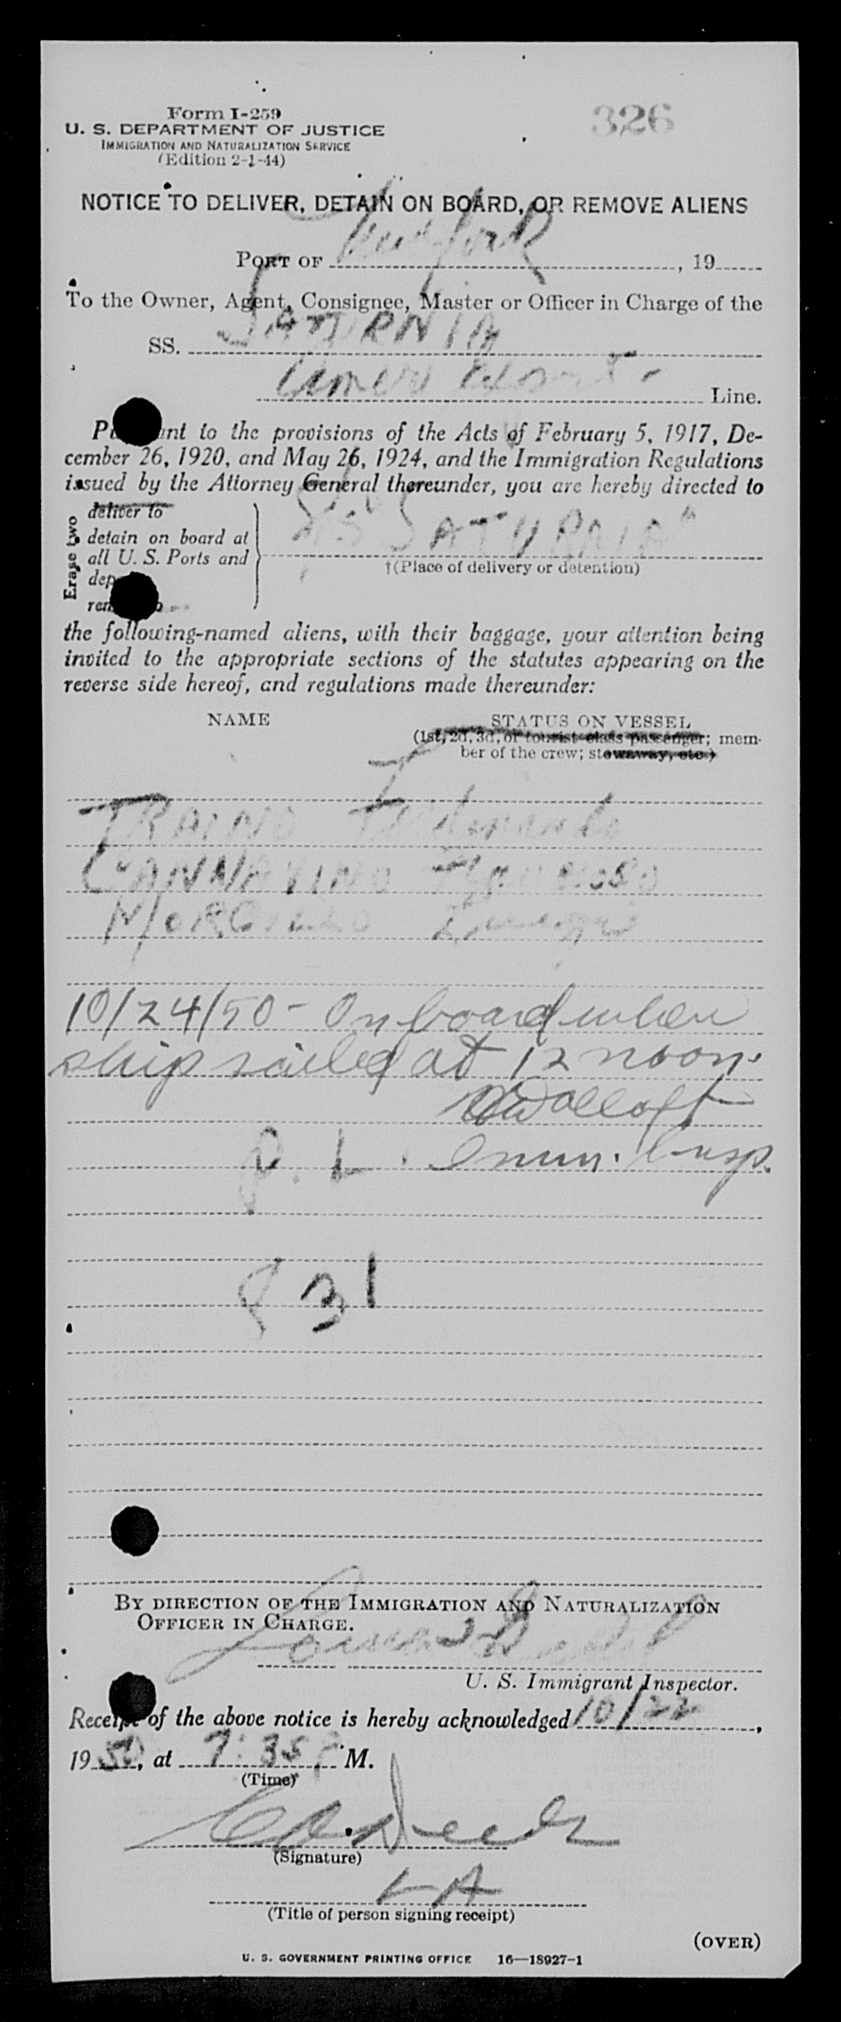 Form I-259
326
U. S. DEPARTMENT OF JUSTICE
IMMIGRATION AND NATURALIZATION SERVICE
(Edition 2-1-44)
NOTICE TO DELIVER, DETAIN ON BOARD, OR REMOVE ALIENS
PORT OF New York, 19
To the Owner, Agent, Consignee, Master or Officer in Charge of the
SS. SATURNIA
Amer Export Line.
Pu ant to the provisions of the Acts of February 5, 1917, De-
cember 26, 1920, and May 26, 1924, and the Immigration Regulations
issued by the Attorney General thereunder, you are hereby directed to
Erase two
deliver to
detain on board at
all U. S. Ports and
dep
rem o
SS "SATURNIA"
†(Place of delivery or detention)
the following-named aliens, with their baggage, your attention being
invited to the appropriate sections of the statutes appearing on the
reverse side hereof, and regulations made thereunder:
NAME STATUS ON VESSEL
(1st, 2d, 3d, or tourist class passenger; mem-
ber of the crew; stowaway, etc.)
TRAINO Ferdinando
CANNAVINO
MORGILLO Luigi
10/24/50 - On board when
ship sailed at 12 noon.
Imm. Insp.
P. L.
P 31
BY DIRECTION OF THE IMMIGRATION AND NATURALIZATION
OFFICER IN CHARGE.
U. S. Immigrant Inspector.
Receipt of the above notice is hereby acknowledged 10/22,
1950, at 7:35 P M.
(Time)
(Signature)
(Title of person signing receipt)
(OVER)
U. S. GOVERNMENT PRINTING OFFICE 16—18927-1